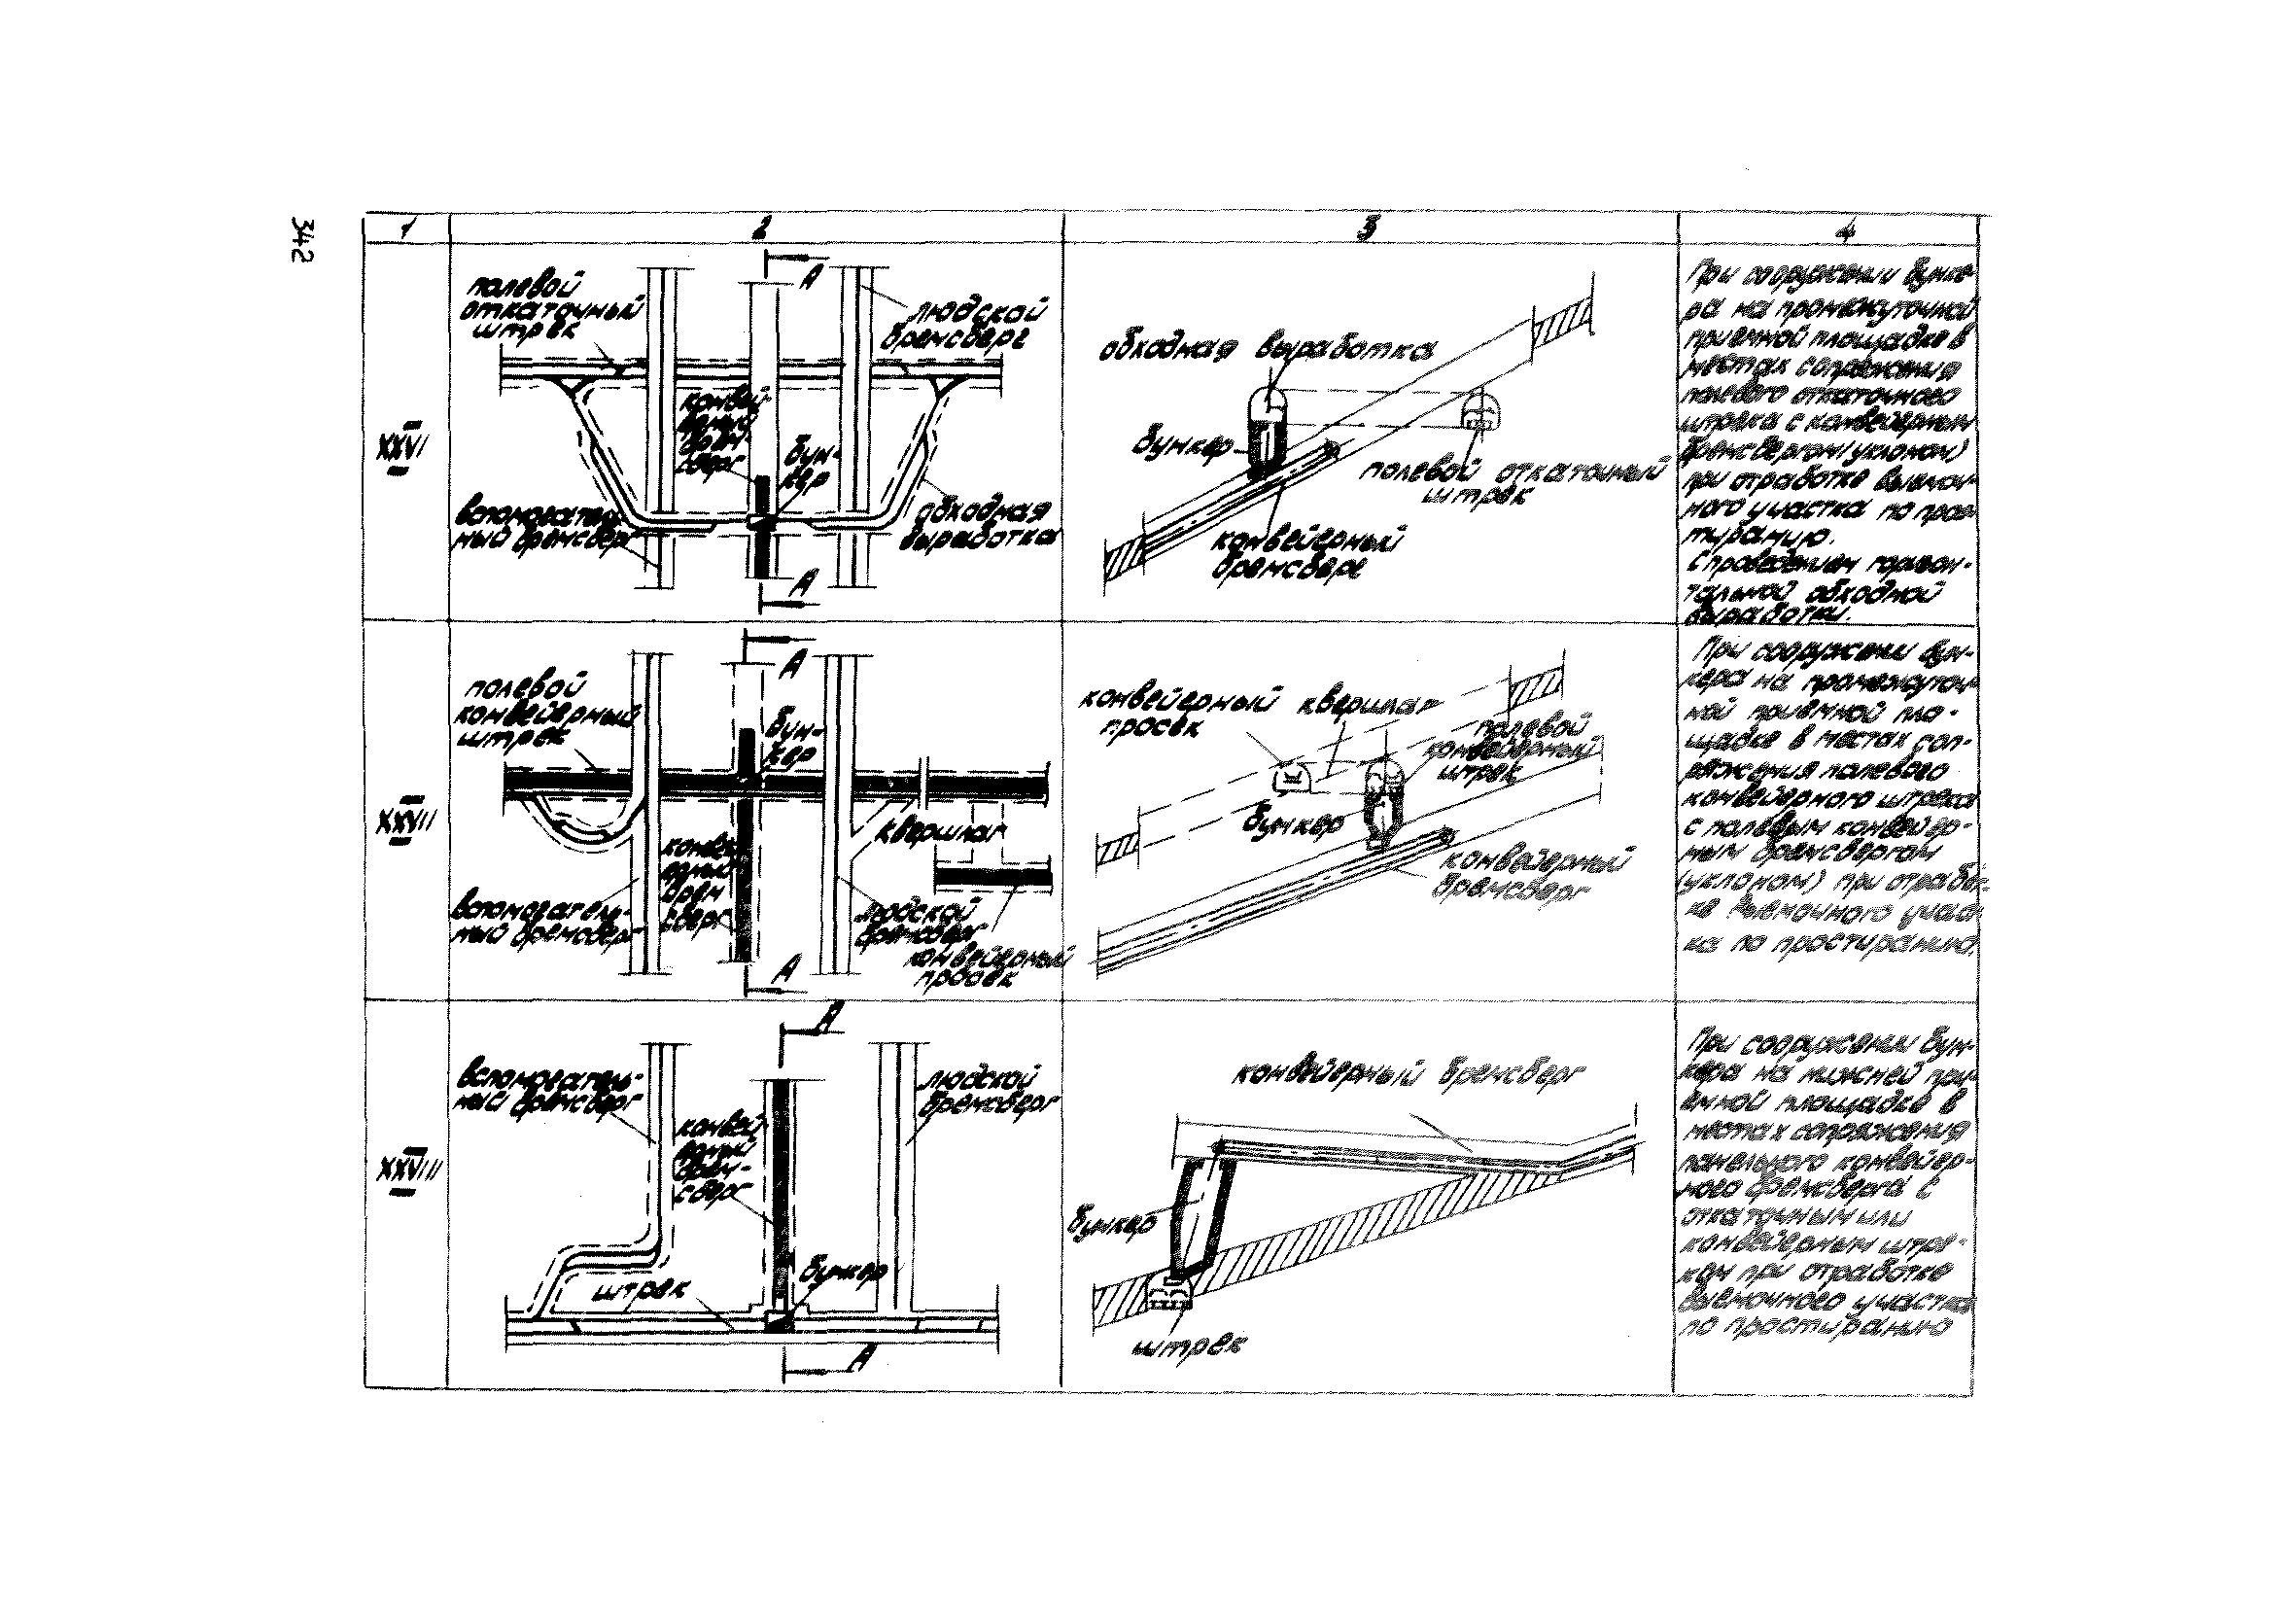 342
1
2
3
4
XXVI
полевой
откаточный
штрек
людской
бремсберг
конвей-
ерный
брем-
сберг
бун-
кер
вспомогатель-
ный бремсберг
обходная
выработка
А
А
обходная выработка
бункер
полевой откаточный
штрек
конвейерный
бремсберг
При сооружении бунке-
ра на промежуточной
приемной площадке в
местах сопряжения
полевого откаточного
штрека с конвейерным
бремсбергом (уклоном)
при отработке выемоч-
ного участка по прос-
тиранию.
С проведением горизон-
тальной обходной
выработки.
XXVII
полевой
конвейерный
штрек
бун-
кер
квершлаг
конвей-
ерный
брем
сберг
вспомогатель-
ный бремсберг
людской
бремсберг
конвейерный
просек
А
А
конвейерный
просек
квершлаг
полевой
конвейерный
штрек
бункер
конвейерный
бремсберг
При сооружении бун-
кера на промежуточ-
ной приемной пло-
щадке в местах соп-
ряжения полевого
конвейерного штрека
с полевым конвейер-
ным бремсбергом
(уклоном) при отработ-
ке выемочного участ-
ка по простиранию.
XXVIII
вспомогатель-
ный бремсберг
конвей-
ерный
брем-
сберг
людской
бремсберг
штрек
бункер
А
А
конвейерный бремсберг
бункер
штрек
При сооружении бун-
кера на нижней при-
емной площадке в
местах сопряжения
панельного конвейер-
ного бремсберга с
откаточным или
конвейерным штре-
ком при отработке
выемочного участка
по простиранию